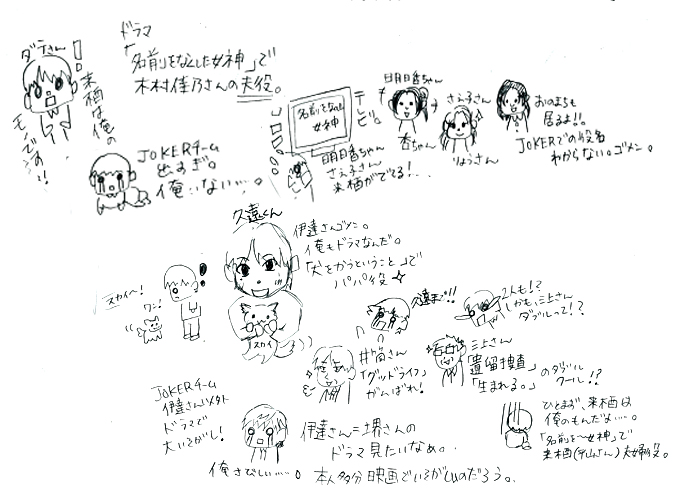 ドラマ
「名前をなくした女神」で
木村佳乃さんの夫役。
ダテさん
来栖は俺の
モノです!!
JOKERチーム
出すぎ。
俺…いない…。
名前をなくした
女神
テレビ。
明日香ちゃん
さえ子さん
来栖がでてる!…
明日香ちゃん
杏ちゃん
さえ子さん
りょうさん
おのまちも
居るよ!!
JOKERでの役名
わからない。ゴメン。
久遠くん
伊達さんゴメン。
俺もドラマなんだ。
「犬をかうということ」で
パパ役
スカイ
スカイ〜!
ワン!
久遠まで!!
2人も!?
しかも三上さん
ダブルって!?
井筒さん
「グッドライフ」
がんばれ!
三上さん
「遺留捜査」
「生まれる。」のダブル
クール!?
JOKERチーム
伊達さんイガイ
ドラマで
大いそがし!
伊達さん=堺さんの
ドラマ見たいなぁ。
俺さびしい…。
本人多分映画でいそがしいのだろう。
ひとまず、来栖は
俺のものだよ…。
「名前を〜女神」で
夫婦役。